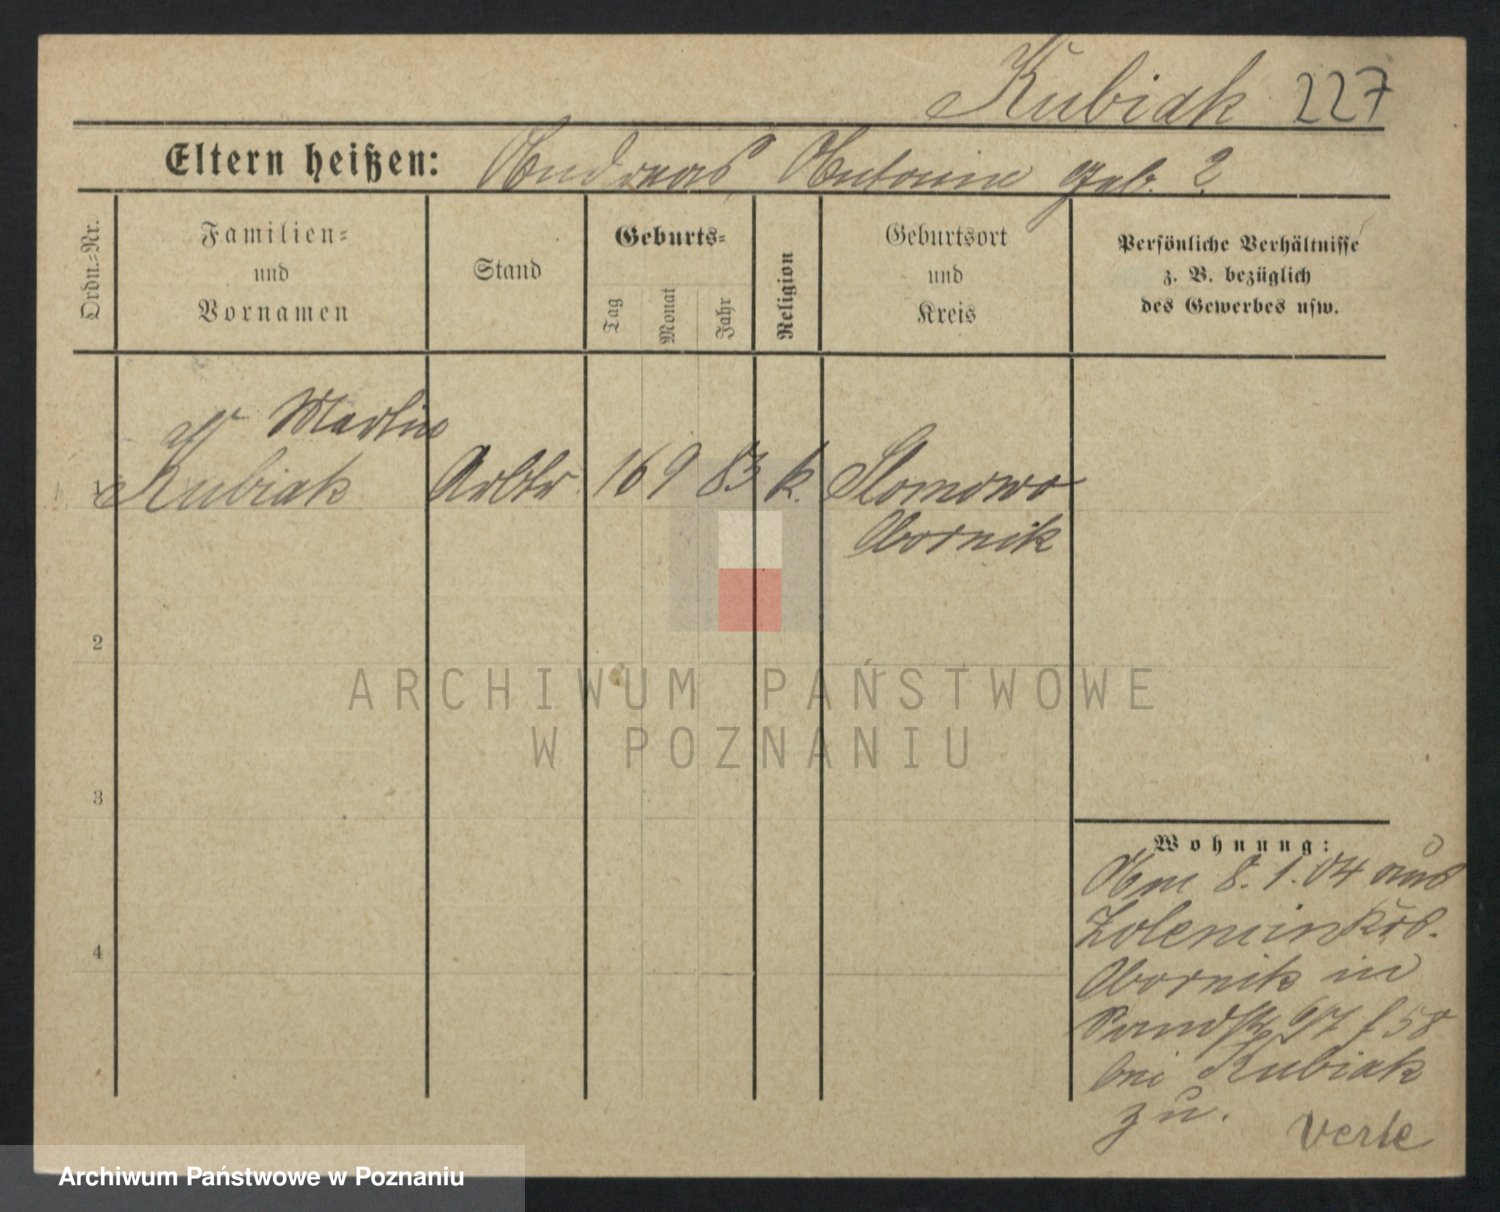 Kubiak 227
Eltern heißen: Andreas, Antonie geb. ?
Ordn.-Nr.
Familien-
und
Vornamen
Stand
Geburts-
Tag
Monat
Jahr
Religion
Geburtsort
und
Kreis
Persönliche Verhältnisse
z. B. bezüglich
des Gewerbes usw.
Martin
1 Kubiak Arbtr. 16 9 83 k. Slomowo
Obornik
2
3
4
Wohnung:
Am 8.1.04 aus
Krs.
Obornik in
Sandstr.
bei Kubiak
zu.
Verte
ARCHIWUM PAŃSTWOWE
W POZNANIU
Archiwum Państwowe w Poznaniu